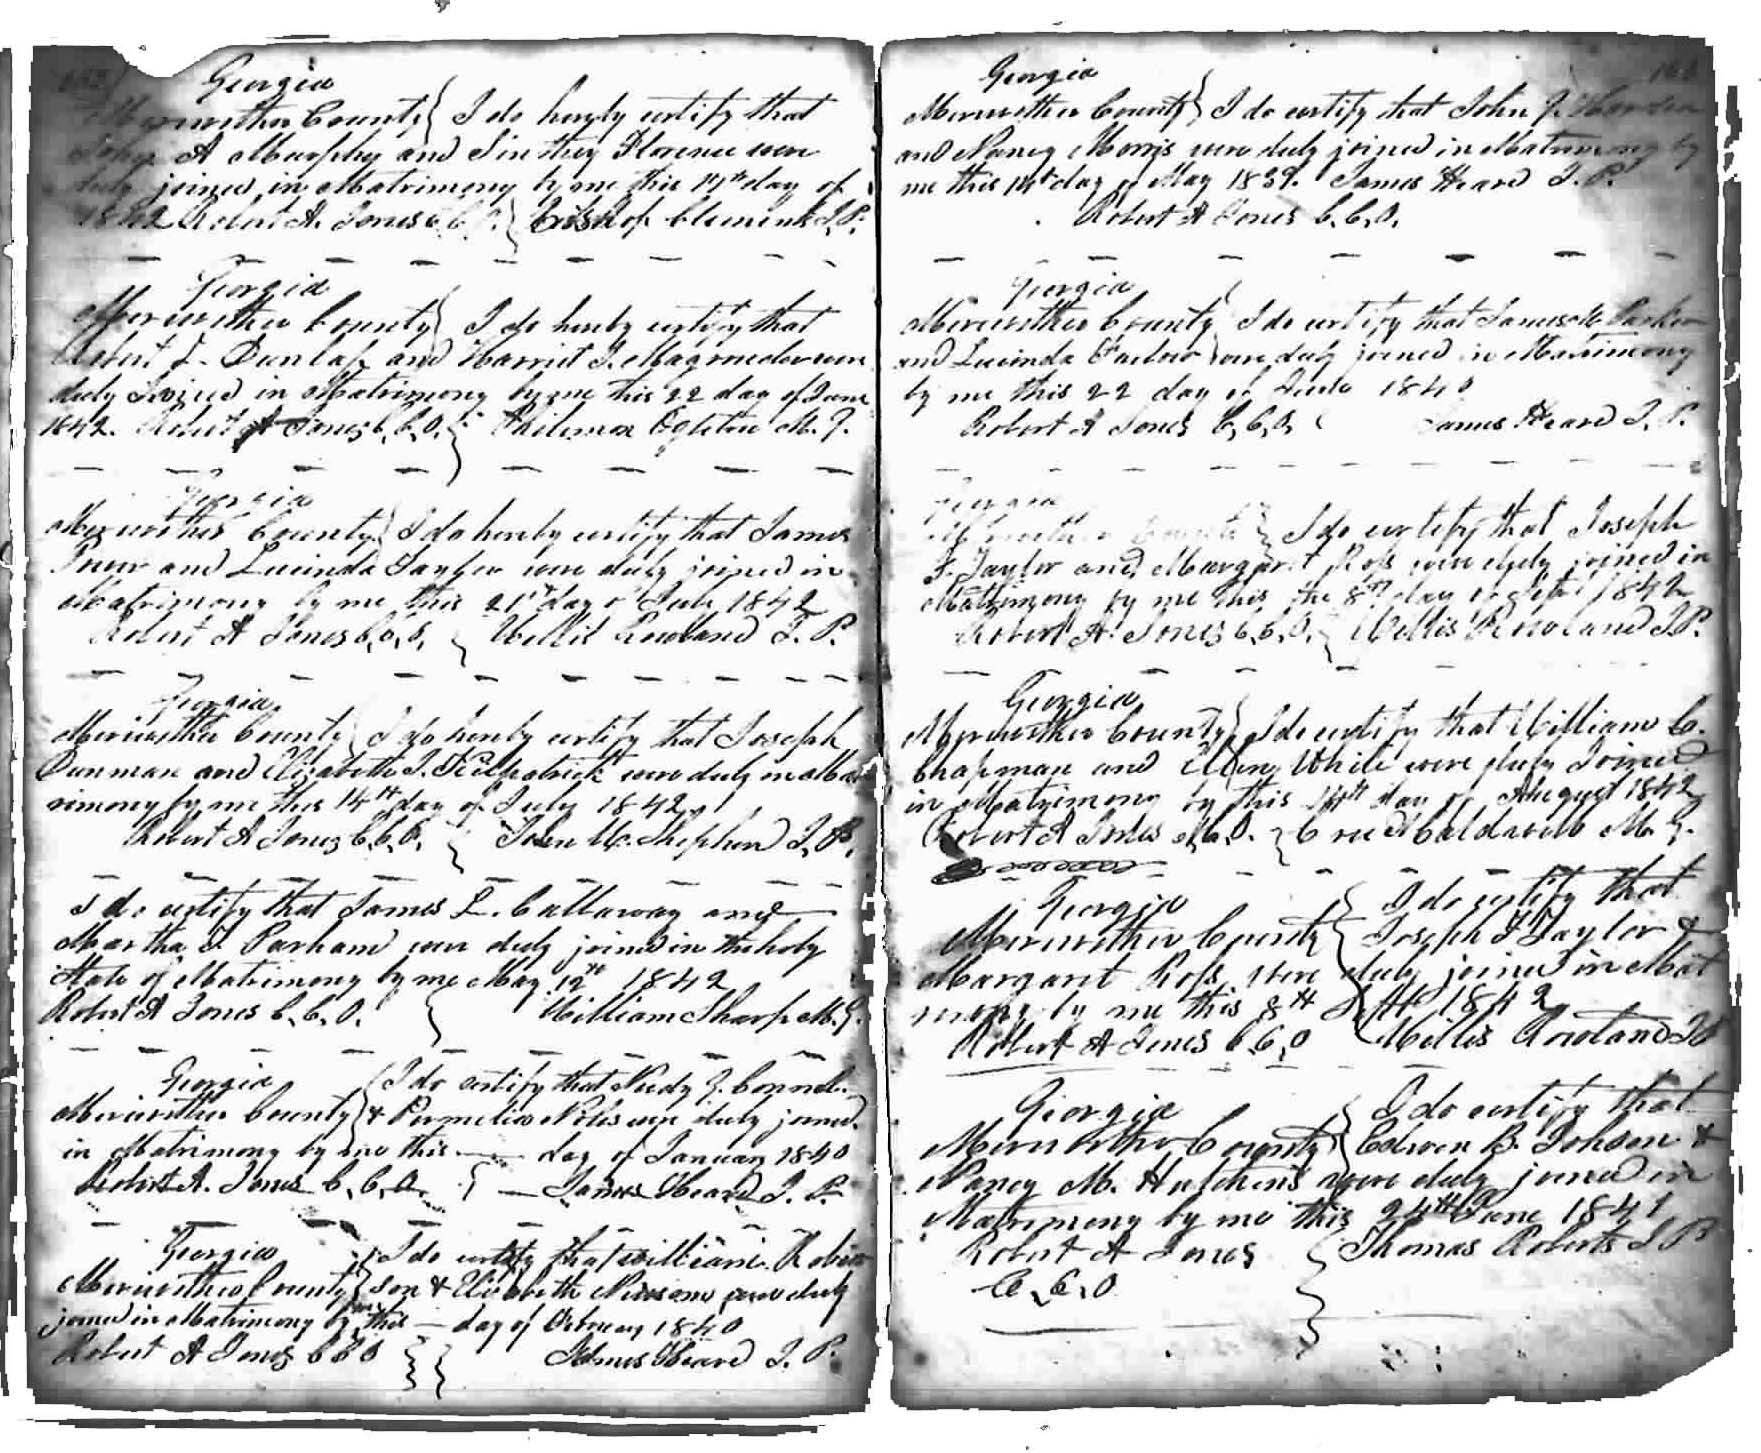 Georgia
Meriwether County } I do hereby certify that
John A Murphy and Sinthey Florence were
duly joined in Matrimony by me this 14th day of
1842 Robert A. Jones C.C.O. } Clements J.P.
Georgia
Meriwether County } I do hereby certify that
Robert J. Dunlap and Harriet J. Magruder were
duly Joined in Matrimony by me this 22 day of June
1842. Robert A Jones C.C.O. } Philemon Ogletree M.G.
Georgia
Meriwether County } I do hereby certify that James
and Lucinda Taylor were duly joined in
Matrimony by me this 21st day of July 1842
Robert A Jones C.C.O. } Willis Rowland J.P.
Georgia
Meriwether County } I do hereby certify that Joseph
Dunman and Elizabeth J. Kilpatrick were duly in Mat
rimony by me this 14th day of July 1842
Robert A Jones C.C.O. } John W. Shepherd J.P.
I do certify that James L. Callaway and
Martha J. Parham were duly joined in the holy
State of Matrimony by me May 12th 1842
Robert A Jones C.C.O. } William Sharp M.G.
Georgia } I do certify that
Meriwether County } & Permelia Noles were duly joined
in Matrimony by me this — day of January 1840
Robert A. Jones C.C.O. } — James Heard J.P.
Georgia } I do certify that William Robin
Meriwether County } son & Elizabeth Newsom were duly
joined in Matrimony by me this — day of February 1840
Robert A Jones C C O } James Heard J.P.
Georgia
Meriwether County } I do certify that John J.
and Nancy Morris were duly joined in Matrimony by
me this 14th day of May 1839. James Heard J.P.
Robert A Jones C.C.O.
Georgia
Meriwether County } I do certify that James M Parker
and Lucinda were duly joined in Matrimony
by me this 22 day of 1840
Robert A Jones C.C.O. } James Heard J.P.
Georgia
Meriwether County } I do certify that Joseph
F. Taylor and Margaret Ross were duly joined in
Matrimony by me this the 8th day of Sept 1842
Robert A. Jones C.C.O. } Willis Rowland J.P.
Georgia
Meriwether County } I do certify that William C.
Chapman and Ellen White were duly Joined
in Matrimony by this 14th day of August 1842
Robert A Jones C.C.O. } Caldwell M.G.
Georgia } I do certify that
Meriwether County } Joseph F Taylor &
Margaret Ross were duly joined in Mat
rimony by me this 8th Sept 1842
Robert A Jones C.C.O } Willis Rowland JP
Georgia } I do certify that
Meriwether County } Edwin B. Johson &
Nancy M. Hutchins were duly joined in
Matrimony by me this 24th June 1841
Robert A Jones } Thomas Roberts J P
C.C.O.